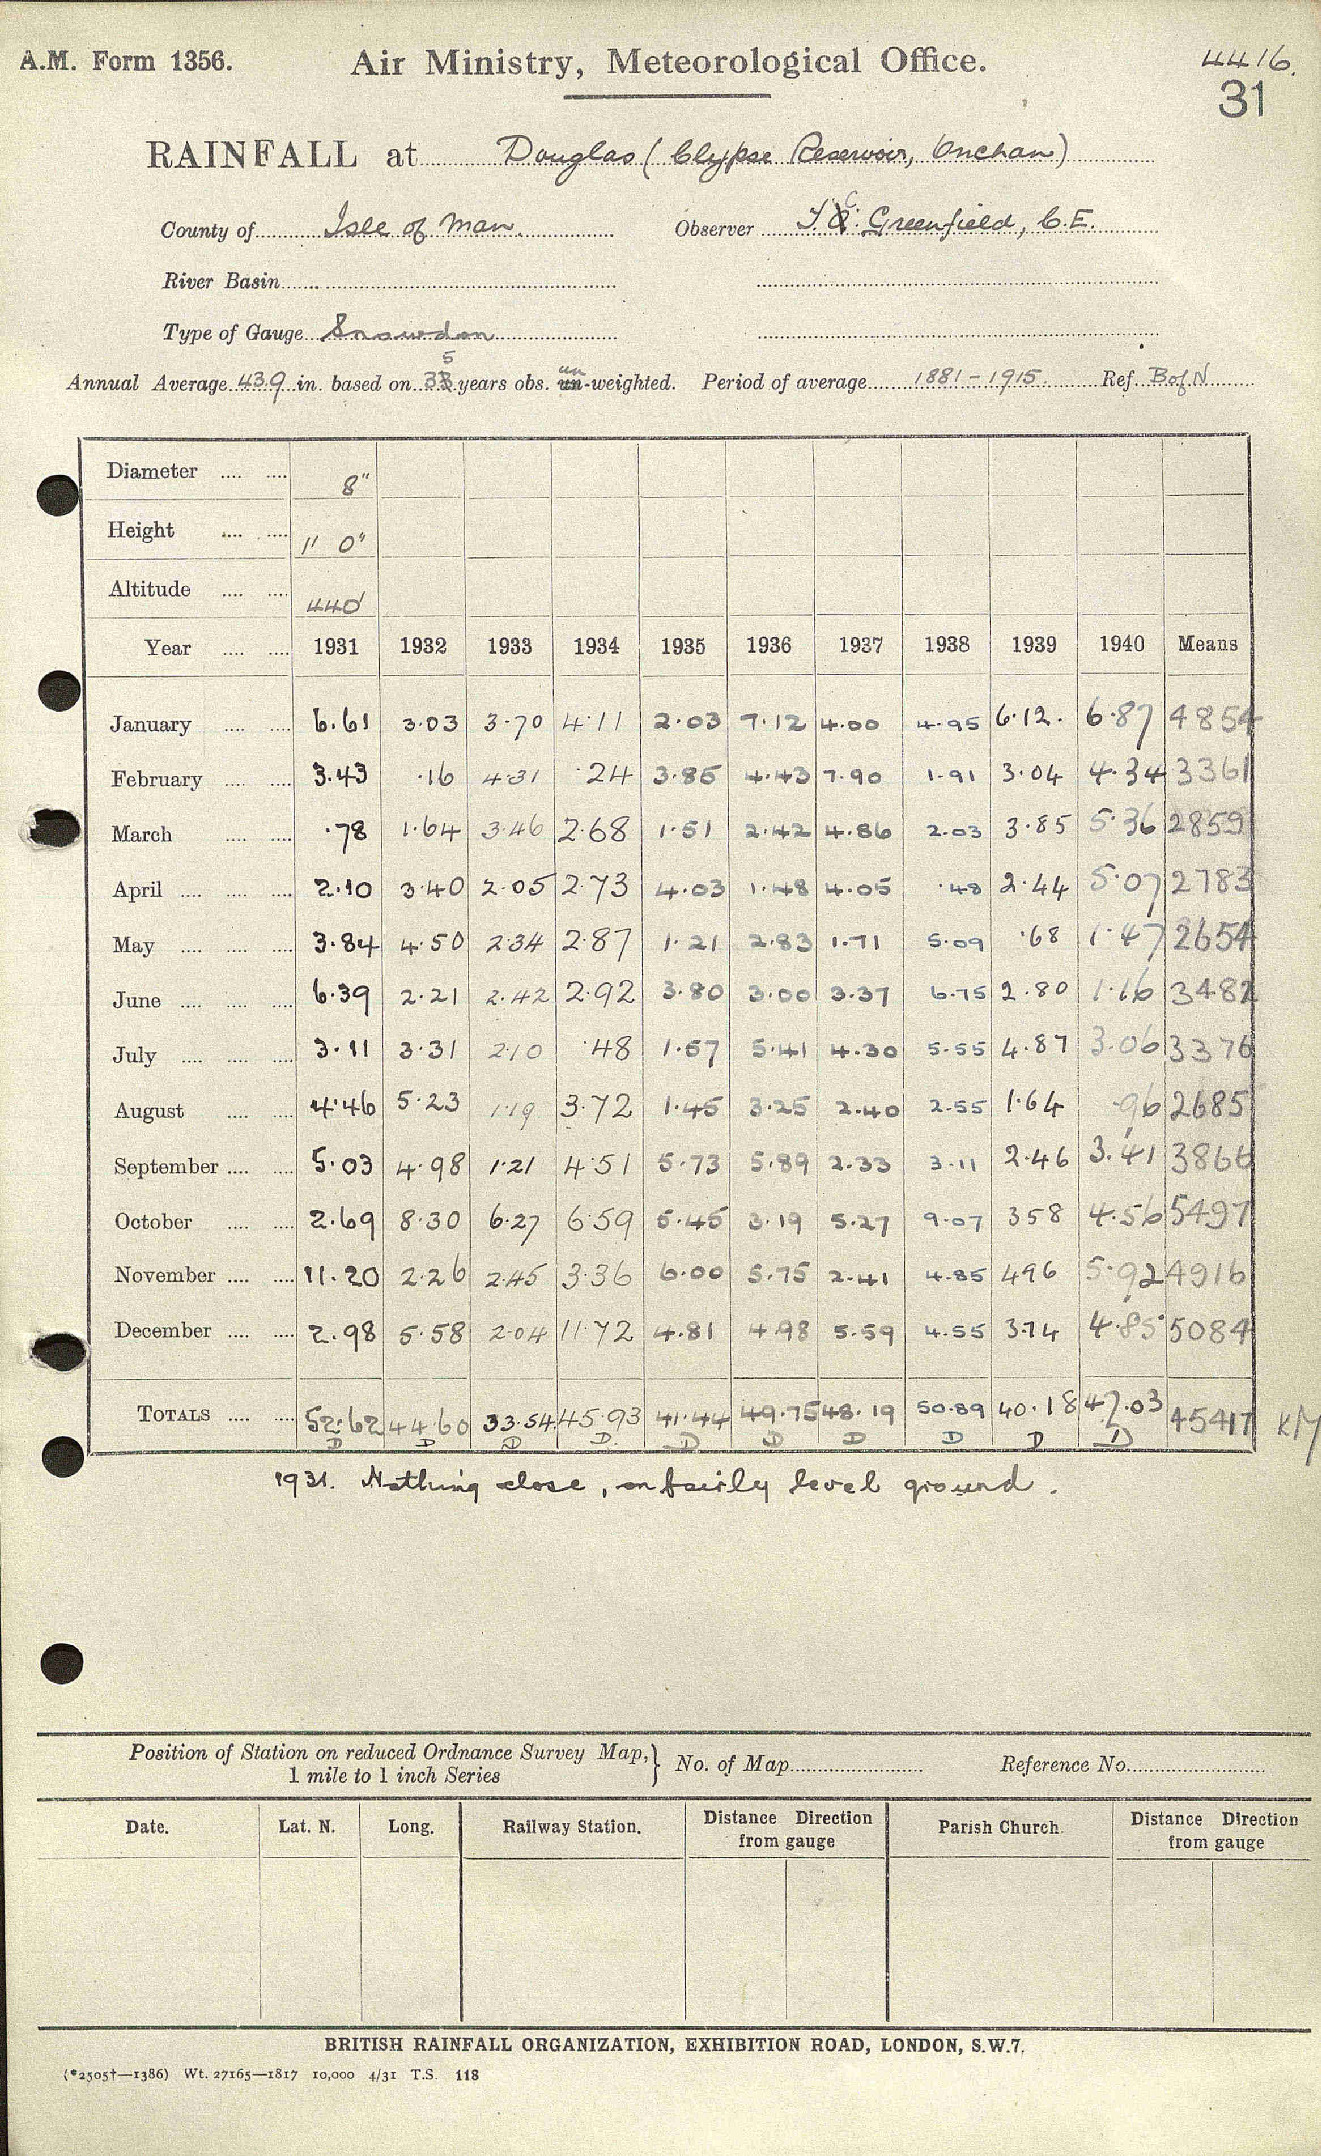 A.M. Form 1356.
Air Ministry, Meteorological Office.
4416.
31
RAINFALL at Douglas (Clypse Reservoir, Onchan)
County of Isle of Man. Observer T. C. Greenfield, C.E.
River Basin
Type of Gauge Snowdon
Annual Average 43.9 in. based on 35 years obs. un-weighted. Period of average 1881-1915. Ref. B of N
Diameter 8"
Height 1' 0"
Altitude 440'
Year 1931 1932 1933 1934 1935 1936 1937 1938 1939 1940 Means
January 6.61 3.03 3.70 4.11 2.03 7.12 4.00 4.95 6.12. 6.87 4854
February 3.43 .16 4.31 .24 3.85 4.43 7.90 1.91 3.04 4.34 3361
March .78 1.64 3.46 2.68 1.51 2.42 4.86 2.03 3.85 5.36 2859
April 2.10 3.40 2.05 2.73 4.03 1.48 4.05 .48 2.44 5.07 2783
May 3.84 4.50 2.34 2.87 1.21 2.83 1.71 5.09 .68 1.47 2654
June 6.39 2.21 2.42 2.92 3.80 3.00 3.37 6.75 2.80 1.16 3482
July 3.11 3.31 2.10 .48 1.57 5.41 4.30 5.55 4.87 3.06 3376
August 4.46 5.23 1.19 3.72 1.45 3.25 2.40 2.55 1.64 .96 2685
September 5.03 4.98 1.21 4.51 5.73 5.89 2.33 3.11 2.46 3.41 3866
October 2.69 8.30 6.27 6.59 5.45 3.19 5.27 9.07 3 58 4.56 5497
November 11.20 2.26 2.45 3.36 6.00 5.75 2.41 4.85 4 96 5.92 4916
December 2.98 5.58 2.04 11.72 4.81 4.98 5.59 4.55 3.74 4.85 5084
TOTALS 52.62 44.60 33.54 45.93 41.44 49.75 48.19 50.89 40.18 47.03 45417 KM
D D D D. D D D D D D
1931. Nothing close, on fairly level ground.
Position of Station on reduced Ordnance Survey Map, 1 mile to 1 inch Series } No. of Map Reference No.
Date. Lat. N. Long. Railway Station. Distance Direction from gauge Parish Church. Distance Direction from gauge
BRITISH RAINFALL ORGANIZATION, EXHIBITION ROAD, LONDON, S.W.7.
(*2505†—1386) Wt. 27165—1817 10,000 4/31 T.S. 118